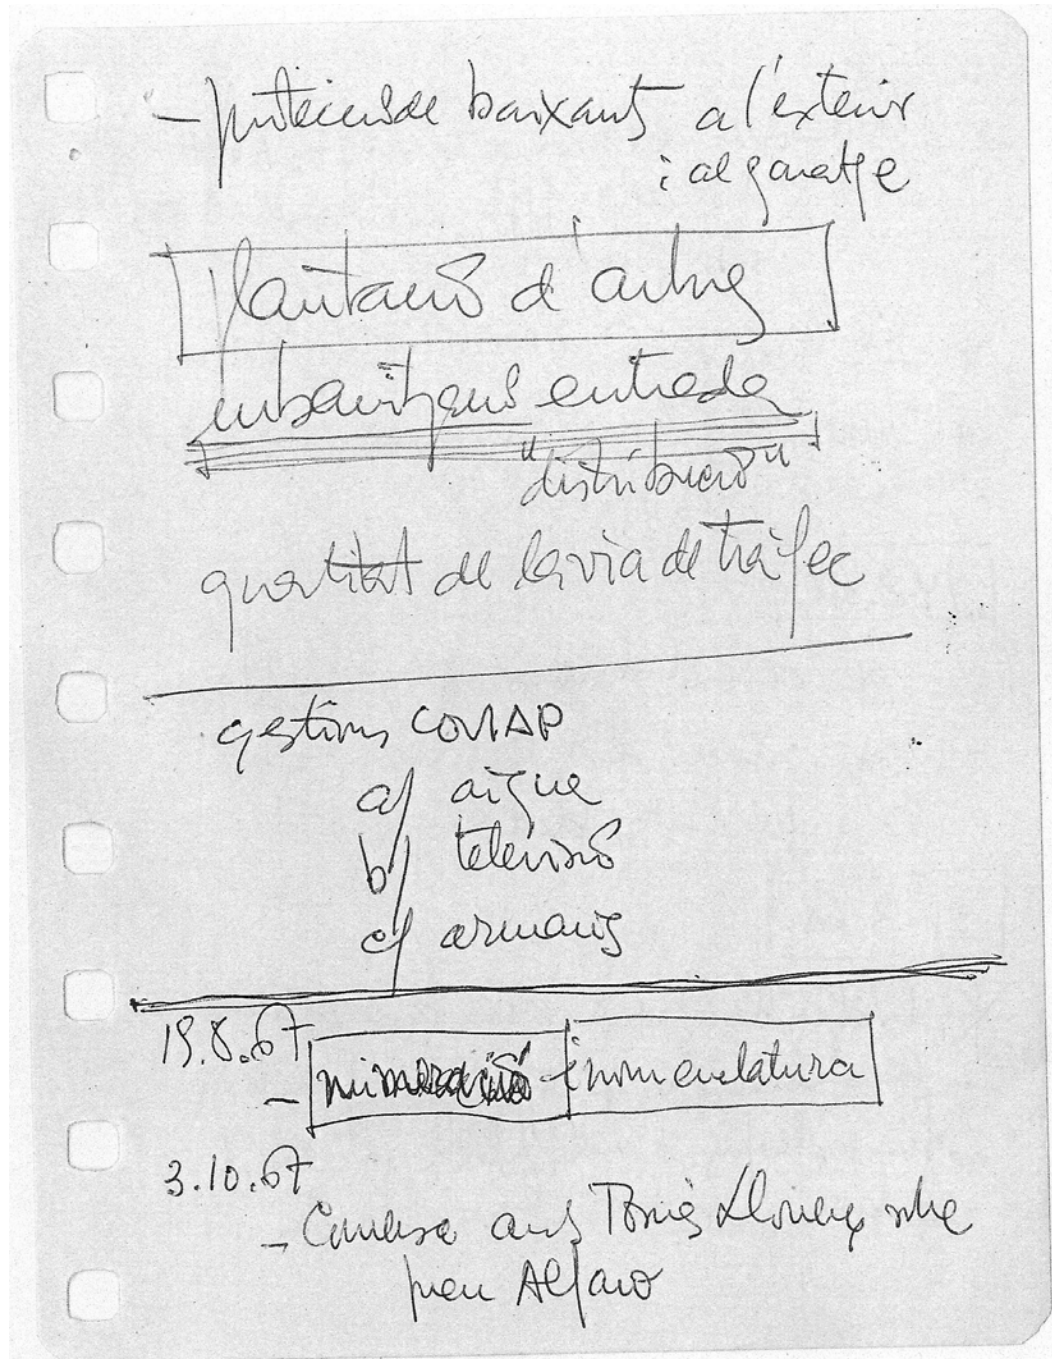 - protecció de baixants a l'exterior
i al garatge
plantació d'arbres
urbanització entrada
"distribució"
quantitat de la via de tràfec
gestions COVIAP
a/ aigua
b/ televisió
c/ armaris
19.8.67
- numeració i nomenclatura
3.10.67
- Conversa amb Tomàs Llorens sobre
preu Alfaro